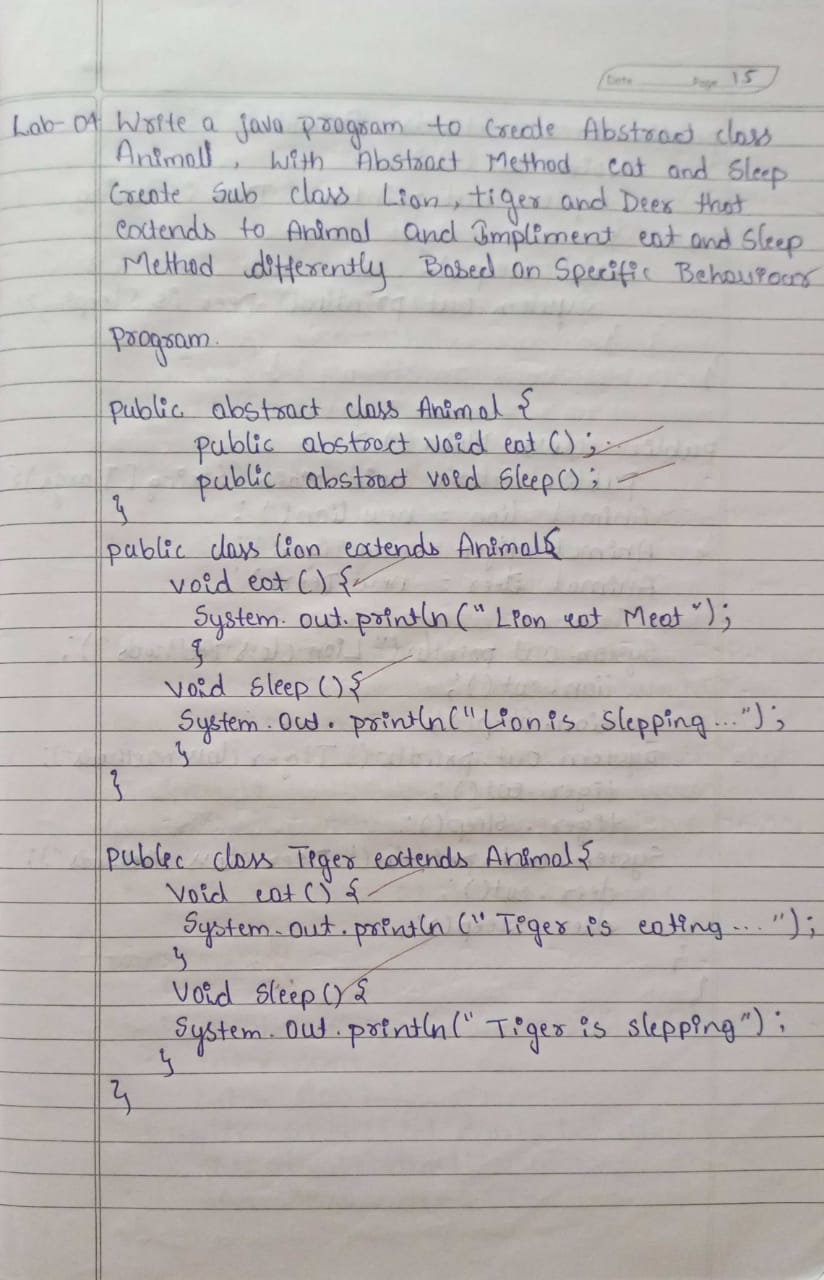 Date Page 15
Lab-04 Write a java program to Create Abstract class
Animall, With Abstract Method eat and Sleep
Create Sub class Lion, tiger and Deer that
extends to Animal and Impliment eat and Sleep
Method differently Based on Specific Behaviour
Program.
public abstract class Animal {
public abstract void eat ();
public abstract void Sleep();
}
public class lion extends Animal{
void eat () {
System. out. println (" Lion eat Meat ");
}
void sleep () {
System. Out. println(" Lion is Slepping ...");
}
}
public class Tiger extends Animal {
Void eat () {
System. out. println (" Tiger is eating ... ");
}
Void Sleep () {
System. Out. println(" Tiger is slepping");
}
}